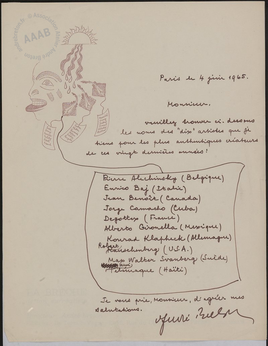 AAAB
Paris le 4 juin 1965.
Monsieur,
veuillez trouver ci-dessous
les noms des "dix" artistes que je
tiens pour les plus authentiques créateurs
de ces vingt dernières années :
Pierre Alechinsky (Belgique)
Enrico Baj (Italie)
Jean Benoît (Canada)
Jorge Camacho (Cuba)
Degottex (France)
Alberto Gironella (Mexique)
Konrad Klapheck (Allemagne)
Robert Rauschenberg (U.S.A.)
Max Walter Svanberg (Suède)
Télémaque (Haïti)
Je vous prie, Monsieur, d'agréer mes
salutations.
André Breton